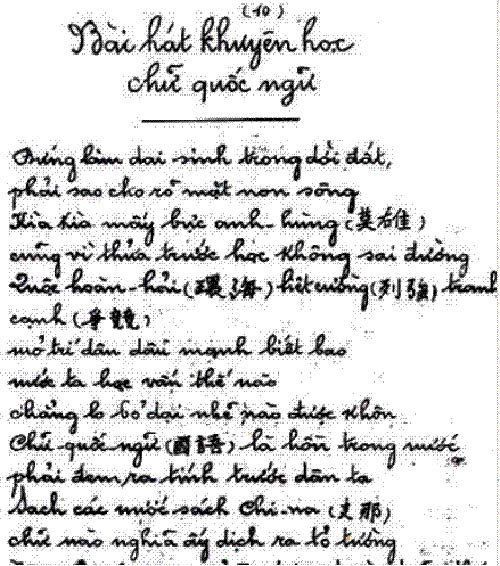 (10)
Bài hát khuyên học
chữ quốc ngữ
Đứng làm dai sinh trong dời đất,
phải sao cho rõ mặt non sông
Kìa kìa mấy bực anh-hùng (英雄)
cũng vì thủa trước học không sai đường
Quốc hoàn-hải (環海) liệt cường (列強) tranh
cạnh (爭競)
mở trí dân dẫu mạnh biết bao
nước ta học vấn thế nào
chẳng lo bỏ dại nhẽ nào được khôn
Chữ quốc ngữ (國語) là hồn trong nước
phải đem ra tính trước dân ta
Sach các nước sách Chi-na (支那)
chữ nào nghĩa ấy dịch ra tỏ tường